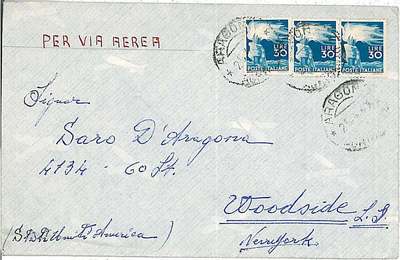 PER VIA AEREA
LIRE 30 LIRE 30 LIRE 30
POSTE ITALIANE POSTE ITALIANE POSTE ITALIANE
ARAGONA
ARAGONA
Signor
Saro D'Aragona
4134 - 60 St.
Woodside L. I.
New York
America)